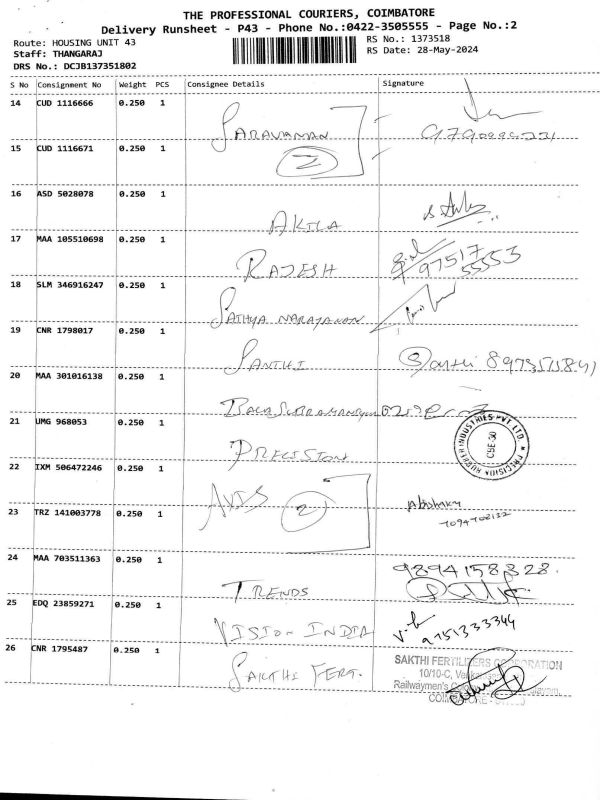 THE PROFESSIONAL COURIERS, COIMBATORE
Delivery Runsheet - P43 - Phone No.:0422-3505555 - Page No.:2
Route: HOUSING UNIT 43 RS No.: 1373518
Staff: THANGARAJ RS Date: 28-May-2024
DRS No.: DCJB137351802
S No Consignment No Weight PCS Consignee Details Signature
14 CUD 1116666 0.250 1
SARAVANAN
15 CUD 1116671 0.250 1
2
16 ASD 5028078 0.250 1
AKILA
17 MAA 105510698 0.250 1
RAJESH 97517 55553
18 SLM 346916247 0.250 1
SATHYA NARAYANAN
19 CNR 1798017 0.250 1
SANTHI Santhi
20 MAA 301016138 0.250 1
BALASUBRAMANIYAN
21 UMG 968053 0.250 1
PRECISION
PRECISION RUBBER INDUSTRIES PVT LTD
CBE-30
22 IXM 506472246 0.250 1
2
23 TRZ 141003778 0.250 1
24 MAA 703511363 0.250 1
TRENDS 9894158328
25 EDQ 23859271 0.250 1
VISION INDIA 9751333344
26 CNR 1795487 0.250 1
SAKTHI FERT.
SAKTHI FERTILIZERS CORPORATION
10/10-C,
Railwaymen's